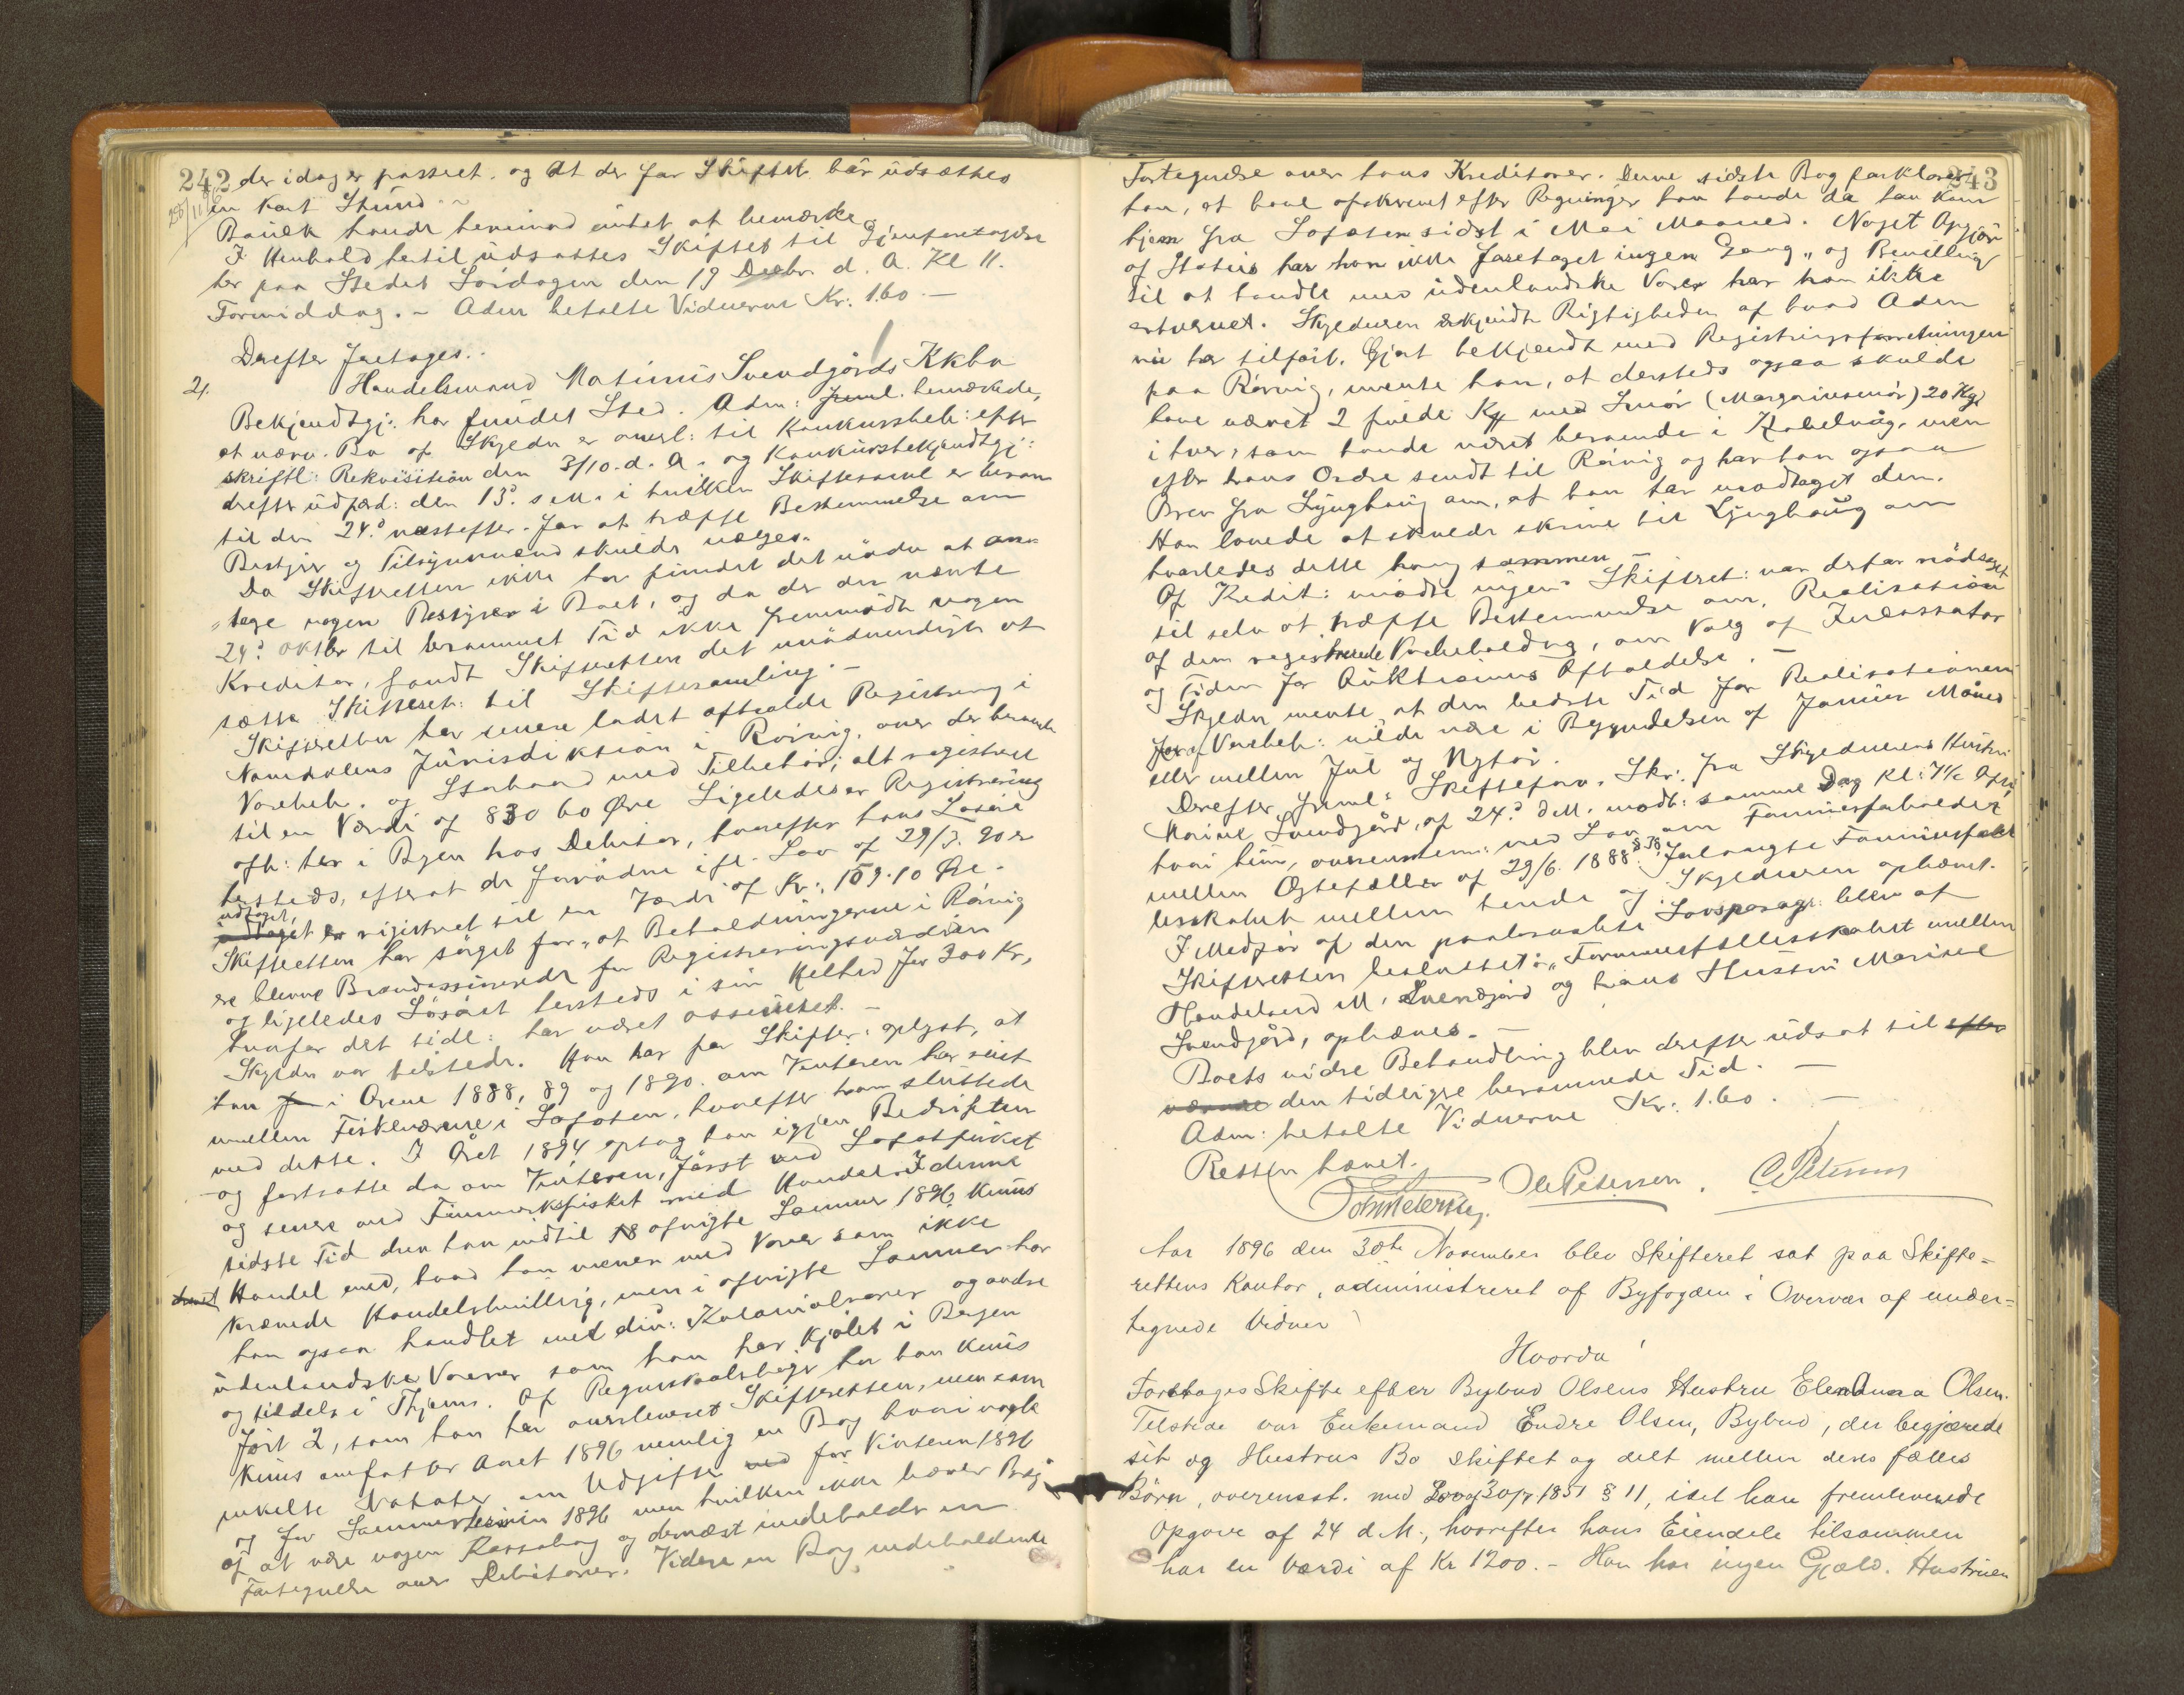 242 der idag er passeret, og at der for Skiftet bør udsættes
25/11 96
en kort Stund. ~
Bauck havde herimod intet at bemærke
I Henhold hertil udsattes Skiftet til Gjenforetagelse
her paa Stedet Lørdagen den 19 Decbr d. A. Kl 11.
Formiddag. - Adm betalte Vidnerne Kr: 1.60 -
Derefter foretages..
2. Handelsmand Matinus Svendgårds Kkbo
Bekjendtgj: har fundet Sted. Adm: freml. bemærkede,
at nærv. Bo af Skyldn er overl: til Konkursbeh: efter
skriftl: Rekvisition den 3/10. d. A. og Konkursbekjendtgj:
derefter udfærd: den 13d. s. M. i hvilken Skiftesaml er beram
til den 24d. næstefter. for at træffe Bestemmelse om
Bestyrer og Tilsynsmænd skulde vælges.
Da Skifteretten ikke har fundet det nødv at an-
"tage nogen Bestyrer i Boet, og da der den nævnte
24d. Oktbr til berammet Tid ikke fremmødte nogen
Kreditor, fandt Skifteretten det unødvendigt at
sætte Skifteret: til Skiftesamling. -
Skifteretten har senere ladet afholde Registrering i
Namdalens Jurisdiktion i Rørvig, over der beroende
Varebeh. og Storbaad med Tilbehør; alt registreret
til en Værdi af 830 60 Øre Ligeledes er Registrering
afh: her i Byen hos Debitor, hvorefter hans Løsøre
hersteds, efterat de fornødne ifl. Lov af 29/3. 90 er
udtaget,
udtaget er registreret til en Værdi af Kr: 109.10 Øre.
Skifteretten har sørget for, at Beholdningerne i Rørvig
ere blevne Brandassurerede for Registreringsværdien
og ligeledes Løsøret hersteds i sin Helhed for 300 Kr,
hvorfor det tidl: har været assureret. -
Skyldn var tilstede. Han har for Skifter: oplyst, at
han i Årene 1888, 89 og 1890. om Vinteren har reist
mellem Fiskeværene i Lofoten, hvorefter han sluttede
med dette. I Året 1894 optog han igjen Bedriften
og fortsatte da om Vinteren, først ved Lofotfisket
og senere ved Finmarksfisket med Handel. I denne
sidste Tid drev han indtil afvigte Sommer 1896 kuns
drevet Handel med, hvad han mener med Varer som ikke
krævede Handelsbevilling, men i afvigte Sommer har
han ogsaa handlet med div: Kolonialvarer og andre
udenlandske Varer som han har kjøbt i Bergen
og tildels i Thjem. Af Regnskabsbøger har han kuns
ført 2, som han har overleveret Skifteretten, men som
kuns omfatter Aaret 1896 nemlig en Bog hvori nogle
enkelte Notater om Udgifter for Vinteren 1896
og for Sommeren 1896 men hvilken ikke bærer Præg
af at være nogen Kassabog og dernæst indeholdt en
Fortegnelse over Debitorer. Videre en Bog indeholdende
243
Fortegnelse over hans Kreditorer. Denne sidste Bog forklarer
han, at have afskrevet efter Regninger han havde da han kom
hjem fra Lofoten sidst i Mai Maaned. Noget Opgjør
af Status har han ikke foretaget ingen Gang, og Bevilling
til at handle med udenlandske Varer har han ikke
erhvervet. Skyldneren erkjendte Rigtigheden af hvad Adm
nu har tilført. Gjort bekjendt med Registreringsforretningen
paa Rørvig, mente han, at dersteds ogsaa skulde
have været 2 fulde Kgg med Smør (Margarinsmør) 20 Kg
i hver, som havde været beroende i Kabelvåg, men
efter hans Ordre sendt til Rørvig og har han ogsaa
Brev fra Ljunghaug om, at han har modtaget dem.
Han lovede at skulde skrive til Ljunghaug om
hvorledes dette hang sammen -
Af Kredit: mødte ingen. Skifteret: var derfor nødsaget
til selv at træffe Bestemmelse om, Realisation
af den registrerede Varebeholdng, om Valg af Inkassator
og Tiden for Auktionens Afholdelse. -
Skyldn mente at den bedste Tid for Realisationen
af Varebeh: vilde være i Begyndelsen af Januar Måned
eller mellem Jul og Nytår.
Derefter freml: Skifteforv. Skr: fra Skyldnerens Hustru
Marine Svendgård, af 24d. d M. modt: samme Dag kl: 7½ Aften
hvori hun, overensstem: med Lov om Formuesforholdet
mellem Ægtefæller af 29/6. 1888 § 38 forlangte Formuesfæl
lesskabet mellem hende og Skyldneren ophævet.
I Medfør af den paaberaabte Lovsparagr: blev af
Skifteretten besluttet: "Formuesfællesskabet mellem
Handelsmd M. Svendgård og hans Hustru Marine
Svendgård, ophæves. -
Boets videre Behandling blev derefter udsat til efter
nævnte den tidligere berammede Tid. -
Adm: betalte Vidnerne Kr: 1.60. -
Retten hævet.
Ole Petersen. C Petersen
Aar 1896 den 30te November blev Skifteret sat paa Skifte=
rettens Kontor, administreret af Byfogden i Overvær af under=
tegnede Vidner
Hvorda!
Foretages Skifte efter Bybud Olsens Hustru Elen Anna Olsen.
Tilstede var Enkemand Endre Olsen, Bybud, der begjærede
sit og Hustrus Bo skiftet og delt mellem deres fælles
Børn, overensst. med Lov af 30 Apr. 1851 § 11, idet han fremleverede
Opgave af 24 d. M., hvorefter hans Eiendele tilsammen
har en Værdi af Kr 1200. - Han har ingen Gjæld. Hustruen